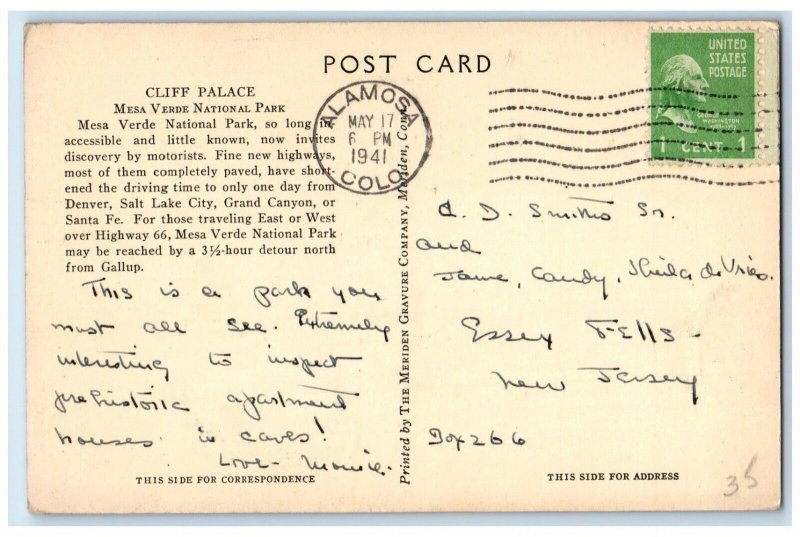 POST CARD
CLIFF PALACE
MESA VERDE NATIONAL PARK
Mesa Verde National Park, so long in-
accessible and little known, now invites
discovery by motorists. Fine new highways,
most of them completely paved, have short-
ened the driving time to only one day from
Denver, Salt Lake City, Grand Canyon, or
Santa Fe. For those traveling East or West
over Highway 66, Mesa Verde National Park
may be reached by a 3½-hour detour north
from Gallup.
This is a park you
must all see. Extremely
interesting to inspect
prehistoric apartment
houses in caves!
Love-
THIS SIDE FOR CORRESPONDENCE
Printed by THE MERIDEN GRAVURE COMPANY, Meriden, Conn.
ALAMOSA
MAY 17
6 PM
1941
COLO.
UNITED
STATES
POSTAGE
GEORGE
WASHINGTON
1 CENT 1
D. Sr.
and
Candy, Sheila de Vries.
Essex Fells -
New Jersey
Box 266
THIS SIDE FOR ADDRESS
35